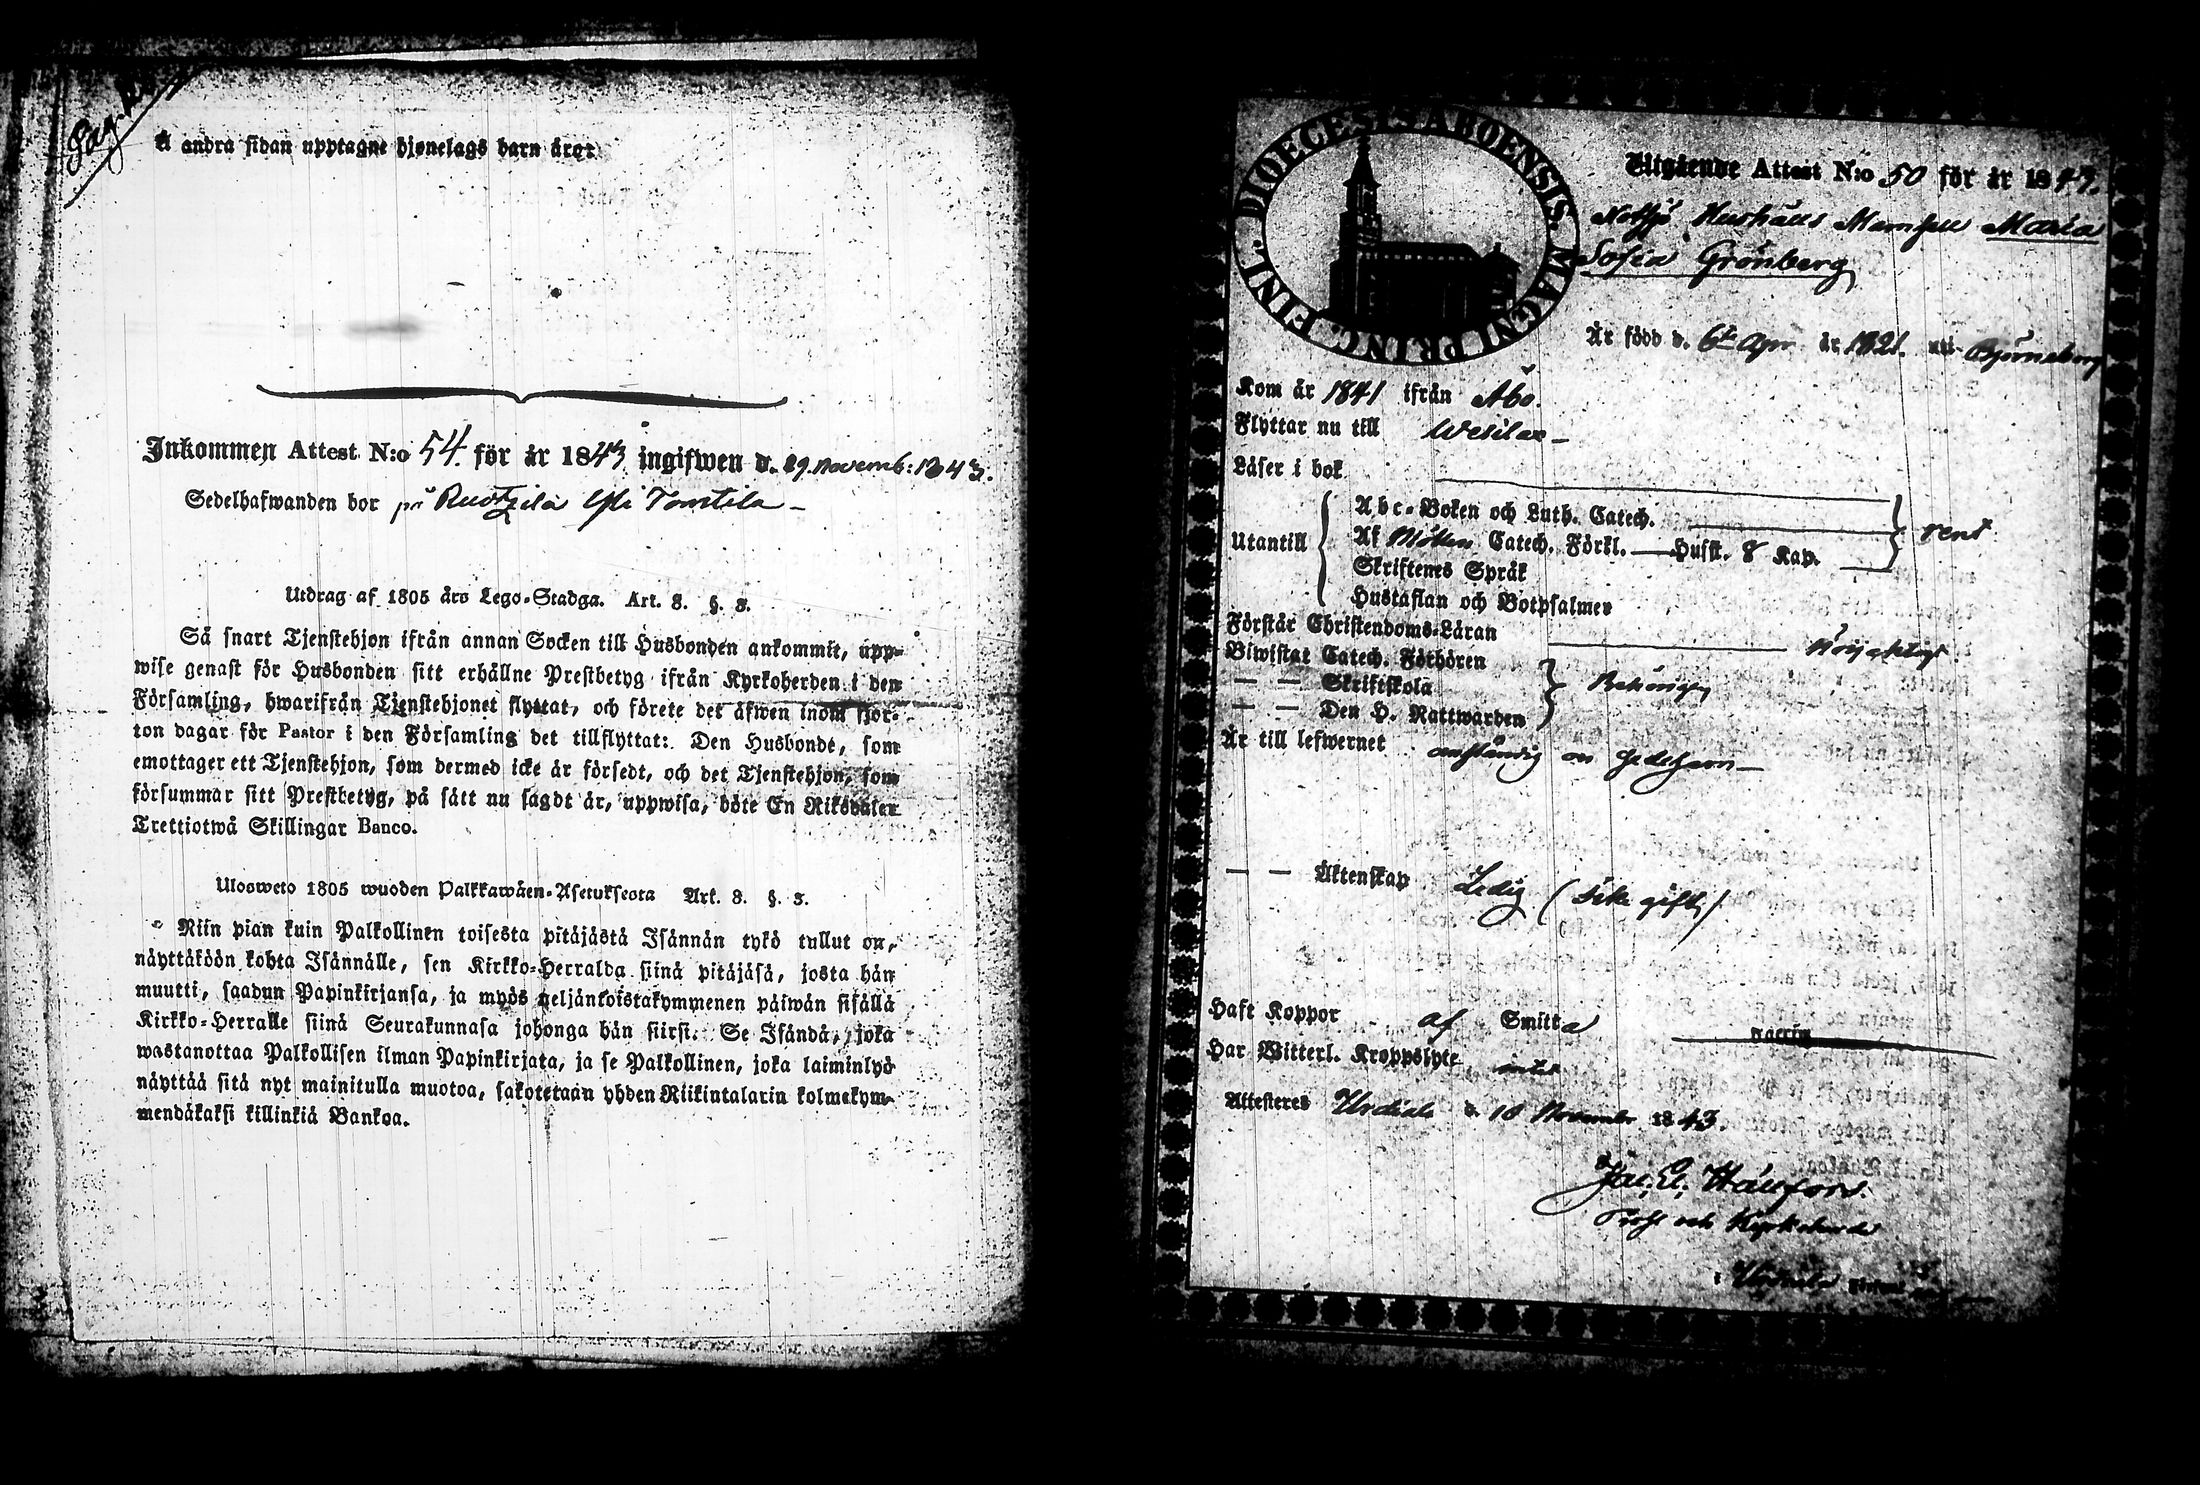 Pag.
Å andra sidan upptagne hjonelags barn äro:
Inkommen Attest N:o 54. för år 1843 ingifwen d. 29. Novemb: 1843.
Sedelhafwanden bor på Ruotzila Yli Tomtila –
Utdrag af 1805 års Lego-Stadga. Art. 8. §. 3.
Så snart Tjenstehjon ifrån annan Socken till Husbonden ankommit, upp-
wise genast för Husbonden sitt erhållne Prestbetyg ifrån Kyrkoherden i den
Församling, hwarifrån Tjenstehjonet flyttat, och förete det äfwen inom fjor-
ton dagar för Pastor i den Församling det tillflyttat: Den Husbonde, som
emottager ett Tjenstehjon, som dermed icke är försedt, och det Tjenstehjon, som
försummar sitt Prestbetyg, på sätt nu sagdt är, uppwisa, böte En Riksdaler
Trettiotwå Skillingar Banco.
Uloswete 1805 wuoden Palkkawäen-Asetuksesta Art. 8. §. 3.
Niin pian kuin Palkollinen toisesta pitäjästä Isännän tykö tullut on,
näyttäköön kohta Isännälle, sen Kirkko-Herralda siinä pitäjäsä, josta hän
muutti, saadun Papinkirjansa, ja myös neljänkoistakymmenen päiwän sisällä
Kirkko-Herralle siinä Seurakunnasa johonga hän siirsi. Se Isändä, joka
wastanottaa Palkollisen ilman Papinkirjata, ja se Palkollinen, joka laiminlyö
näyttää sitä nyt mainitulla muotoa, sakotetaan yhden Riikintalarin kolmekym-
mendäkaksi killinkiä Bankoa.
FINL. DIOECESIS ABOENSIS. MAGNI PRINC.
Utgående Attest N:o 50 för år 1843.
Hushålls Mamsell Maria
Sofia Grönberg
Är född d. 6te Apr år 1821. uti Björneborg
Kom år 1841 ifrån Åbo.
Flyttar nu till Wesilax –
Läser i bok
Utantill
Abc-Boken och Luth. Catech.
rent
Af Catech. Förkl. — Husst. 8 Kap.
Skriftenes Språk
Hustaflan och Botpsalmer
Förstår Christendoms-Läran
Biwistat Catech. Förhören
— — Skriftskola
— — Den H. Nattwarden
Är till lefwernet anständig och gedigen –
— — Äktenskap Ledig (icke gift)
Haft Koppor af Smitta
Har Witterl. Kroppslyte intet
Attesteres Urdiala d. 10 November 1843.
Jac. E. Hällfors.
Prost och Kyrkoherde
i Urdiala